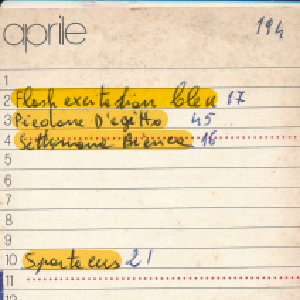 aprile 194
1
2 Flesh excitation bleu 17
3 Piccione D'egitto 45
4 Settimana Bianca 16
5
6
7
8
9
10 Spartacus 21
11
12